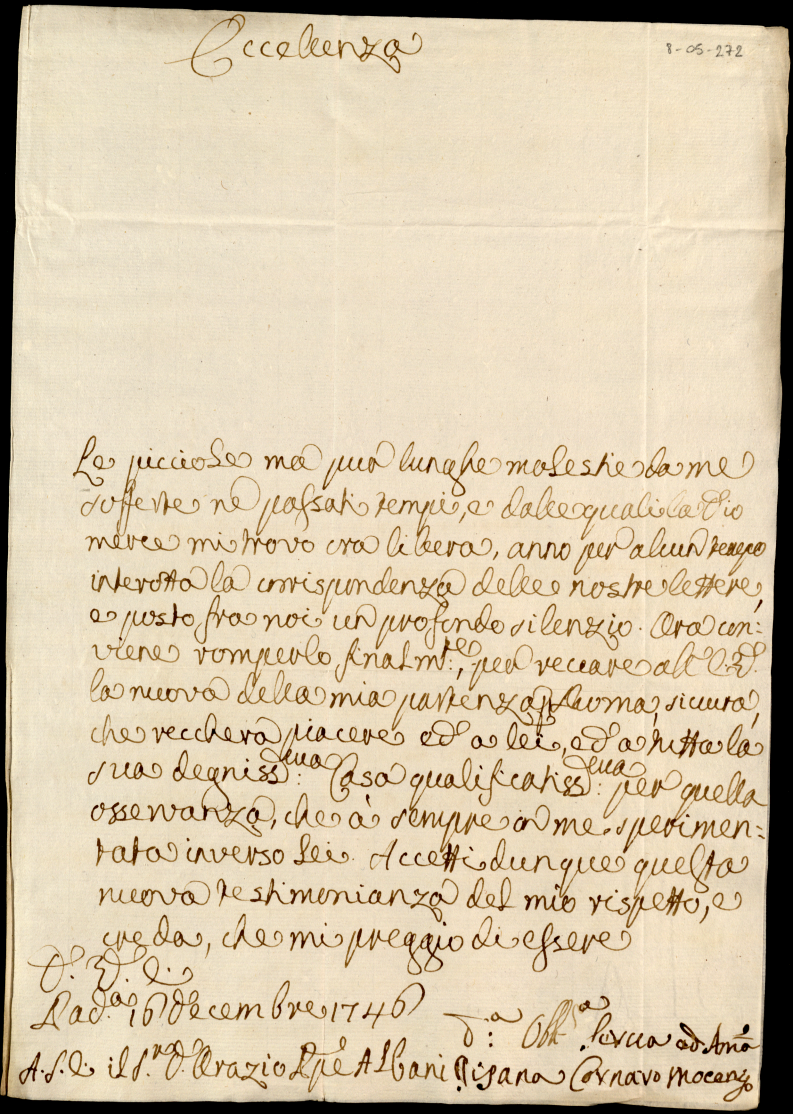 Eccellenza
8-05-272
Le picciole ma pur lunghe molestie da me
sofferte ne passati tempi, e dalle quali la Dio
merce mi trovo ora libera, anno per alcun tempo
interotta la corrispondenza delle nostre lettere,
e posto fra noi un profondo silenzio. Ora con:
viene romperlo finalm.te, per reccare all' E.V.
la nuova della mia partenza p Roma, sicura,
che reccherà piacere ed' a lei, ed' a tutta la
sua degniss:ma Casa qualificatiss:ma per quella
osservanza, che à sempre in me sperimen:
tata inverso Lei. Accetti dunque questa
nuova testimonianza del mio rispetto, e
creda, che mi preggio di essere
D. V. E.
Pad.a 16 Decembre 1746
D:a Obb.a Serva ed Ama
A.S.E. il S.r D. Orazio Albani Pisana Cornaro Mocenigo